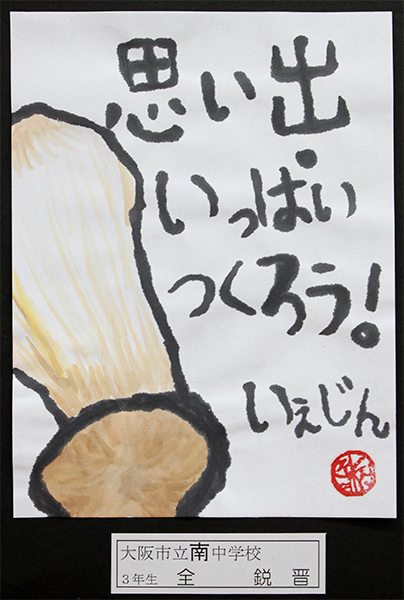 思い出
いっぱい
つくろう!
いぇじん
大阪市立南中学校
3年生 全 鋭晋